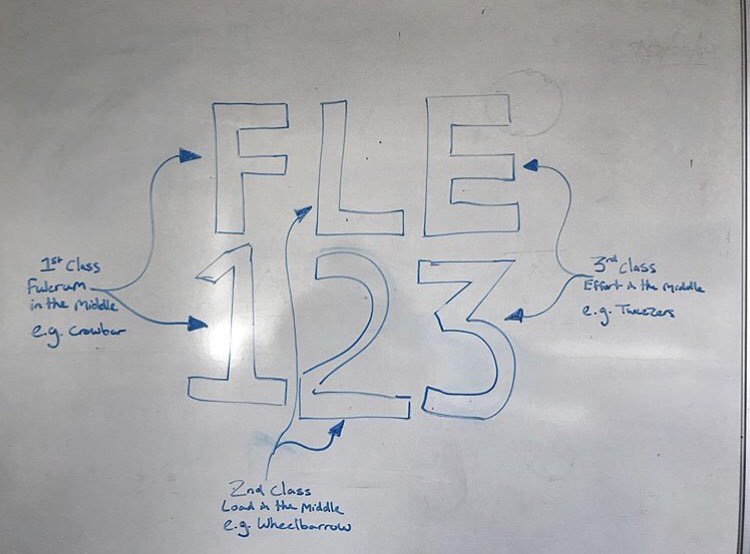 FLE
123
1st Class
Fulcrum
in the Middle
e.g. Crowbar
2nd Class
Load in the Middle
e.g. Wheelbarrow
3rd Class
Effort in the Middle
e.g. Tweezers